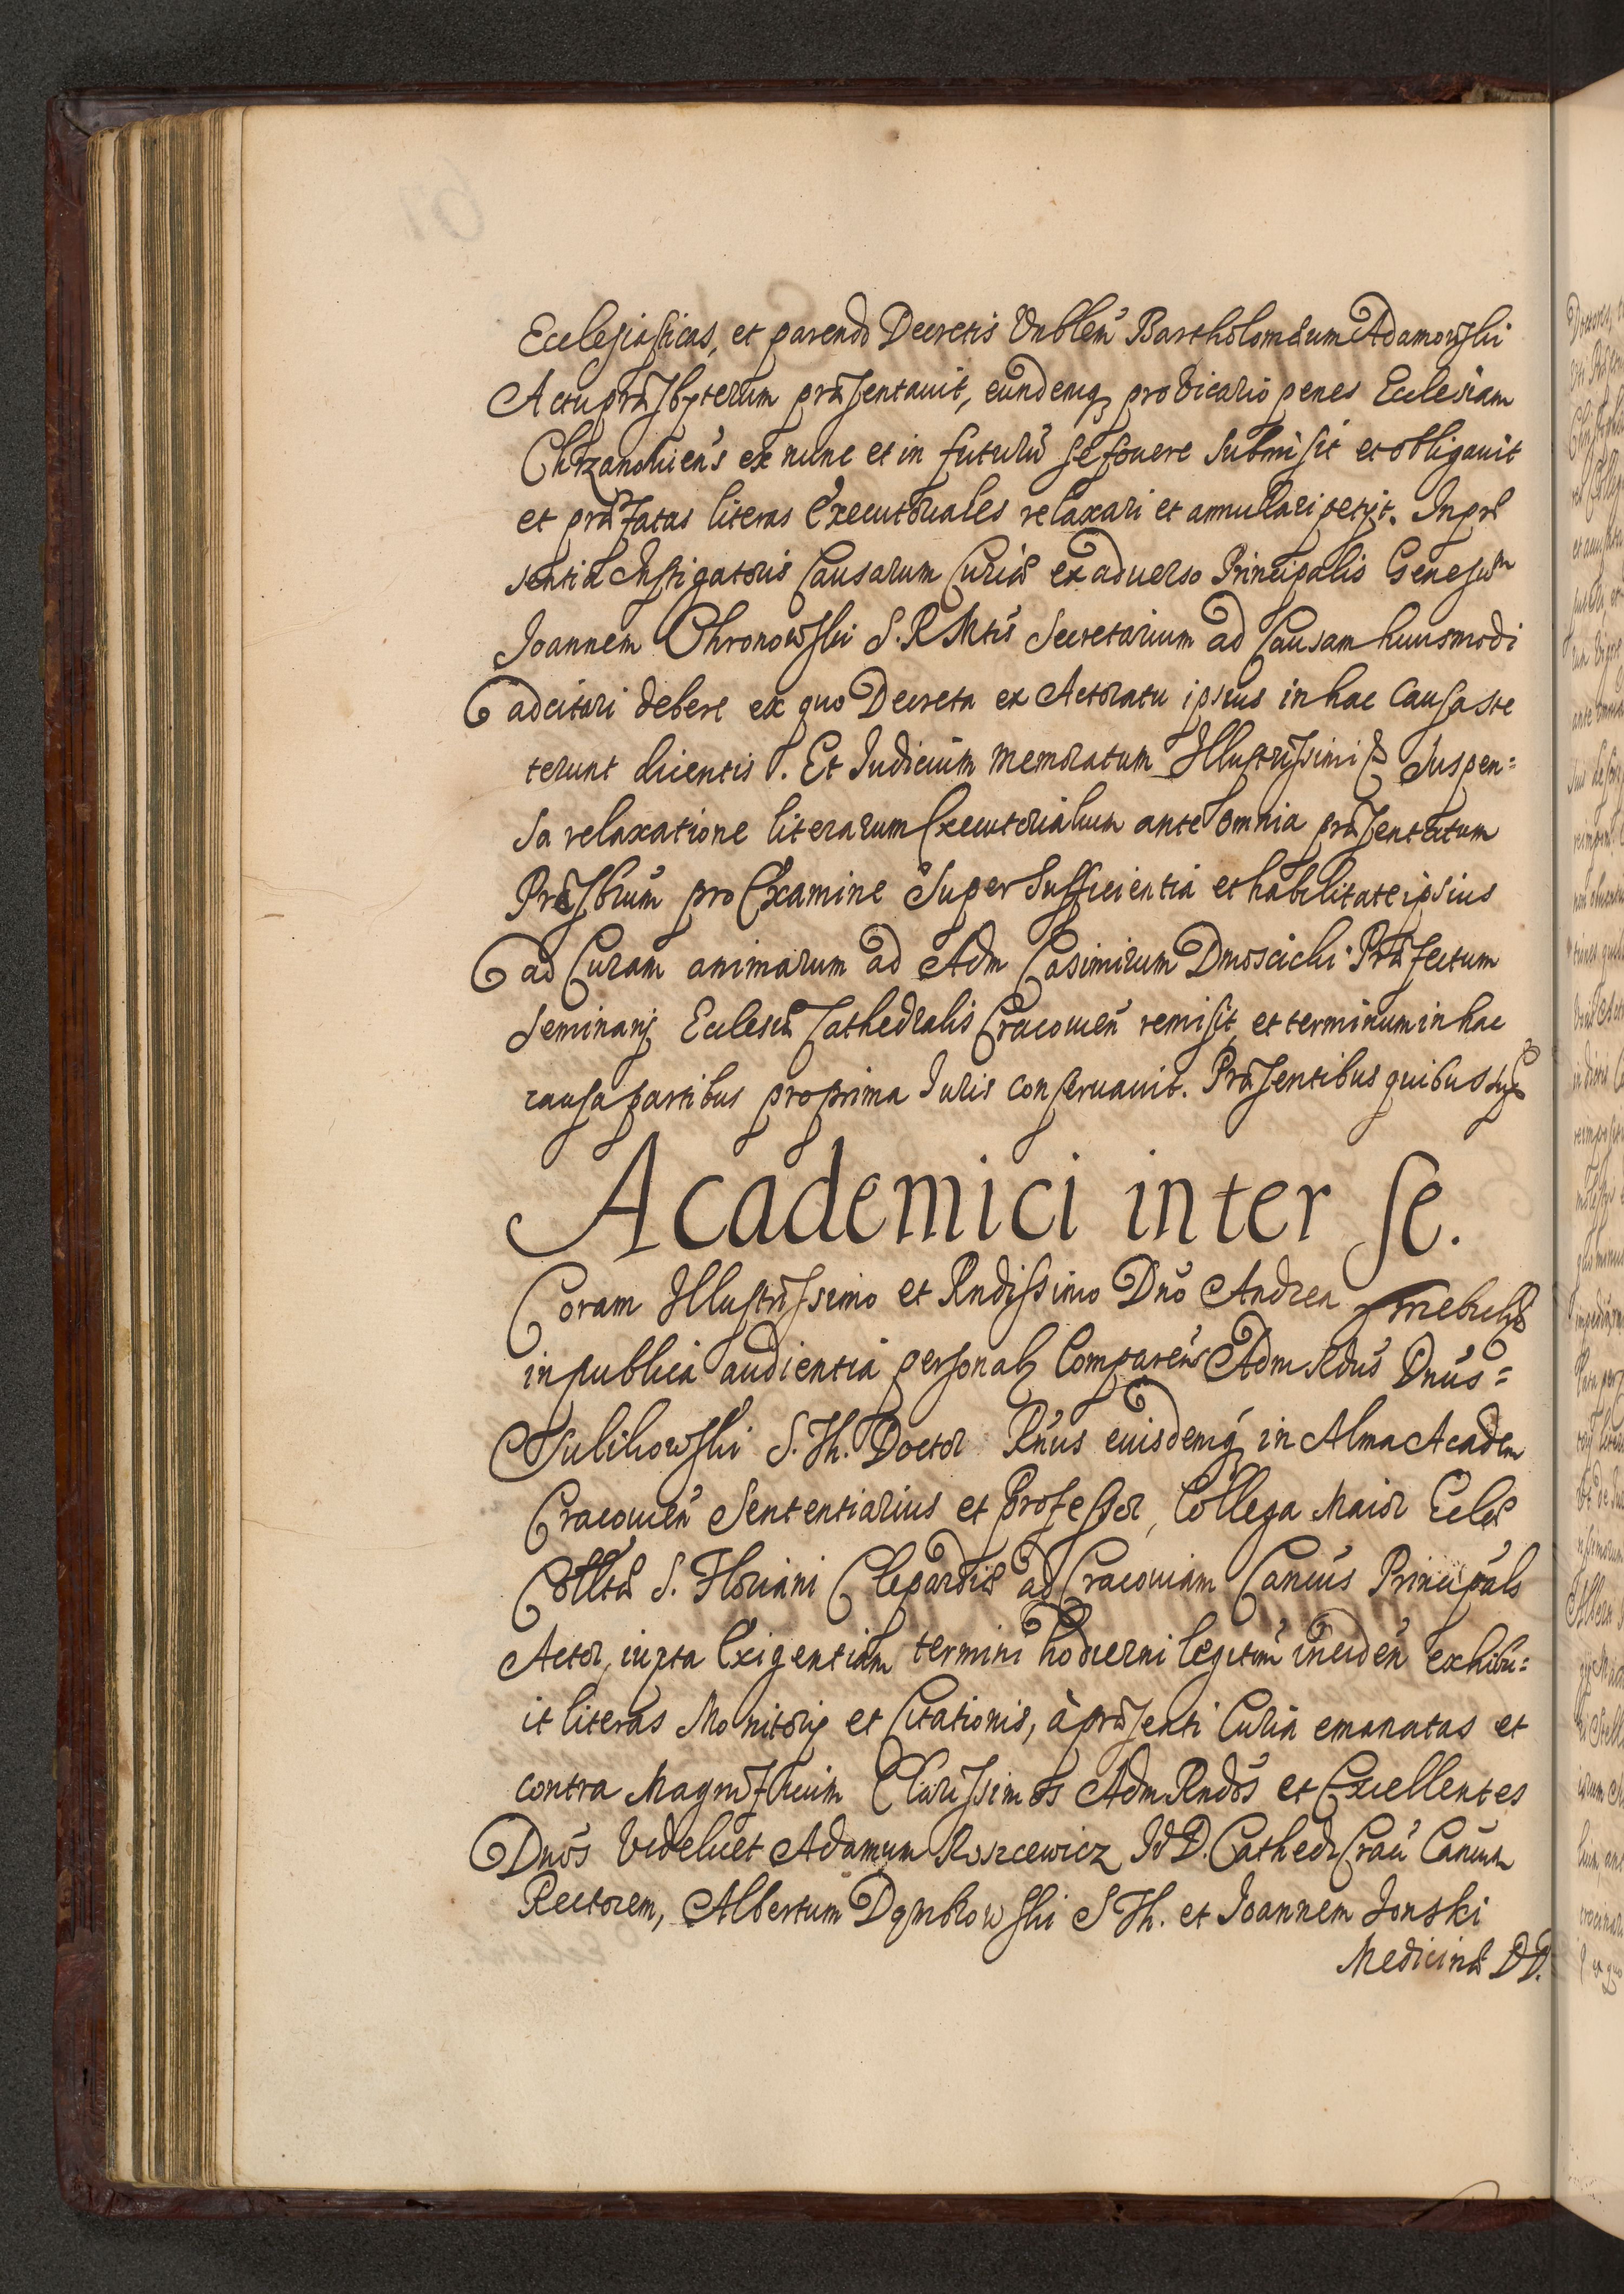 Ecclesiasticas, et parendo Decretis Vnblem̄ Bartholomæum Adamowski
Actupræsbyterum præsentauit, eundemq; pro Vicario penes Ecclesiam
Chrzanouiens̄ ex nunc et in futurū se fouere submisit et obligauit
et præfatas literas Executoriales relaxari et annullari petijt. In præ
sentia Instigatoris Causarum Curiæ ex aduerso Principalis Generosum
Joannem Chronowski S. R. Mtis Secretarium ad Causam huiusmodi
adcitari debere ex quo Decreta ex Actoratu ipsius in hac Causa ste
terunt dicentis. Et Iudicium memoratum Illustrissimi D Suspen=
sa relaxatione literarum Executorialium ante omnia præsentatum
Præsbrum̄ pro Examine super sufficientia et habilitate ipsius
ad Curam animarum ad Adm Casimirum Dmoscicki Præfectum
Seminarij Ecclesiæ Cathedralis Cracouien̄ remisit, et terminum in hac
causa partibus pro prima Iuris conseruauit. Præsentibus quibus supra
Academici inter se.
Coram Illustrissimo et Rndissimo Dn̄o Andrea Trzebicki
in publica audientia personalr Comparens̄ Adm Rdus Dn̄us=
Sulikowski S. Th. Doctor Rn̄us eiusdemq; in Alma Academ
Cracouien̄ Sententiarius et Professor, Collega Maior Eclæ
Colltæ S. Floriani Clepardiæ ad Cracouiam Can̄cus Principals
Actor, iuxta Exigentiam termini hodierni legitim̄ inciden̄ exhibu=
it literas Monitorij et Citationis, à præsenti Curia emanatas et
contra Magnificum Clarissimos Adm Rndos et Excellentes
Dn̄os Videlicet Adamum Roszcewicz IVD. Cathedr Crac̄ Can̄cum
Rectorem, Albertum Dąmbrowski S Th. et Joannem Jonski
Medicinæ DD.